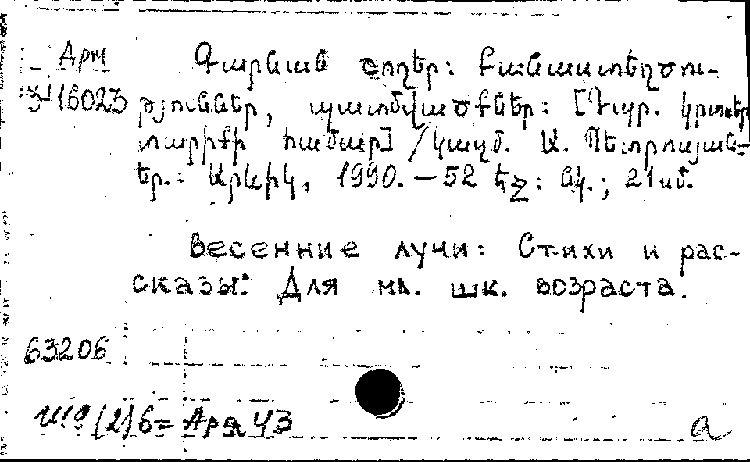 Арм
3-16023
Գարնան շողեր: Բանաստեղծու-
թյուններ, պատմվածքներ: [Դպր. կրտսեր
տարիքի համար] / Կազմ. Ա. Պետրոսյան.-
Եր.: Արևիկ, 1990. – 52 էջ: նկ.; 21սմ.
Весенние лучи: Стихи и рас-
сказы: Для мл. шк. возраста.
63206
Ш9(2)6= Аря Ч3
а